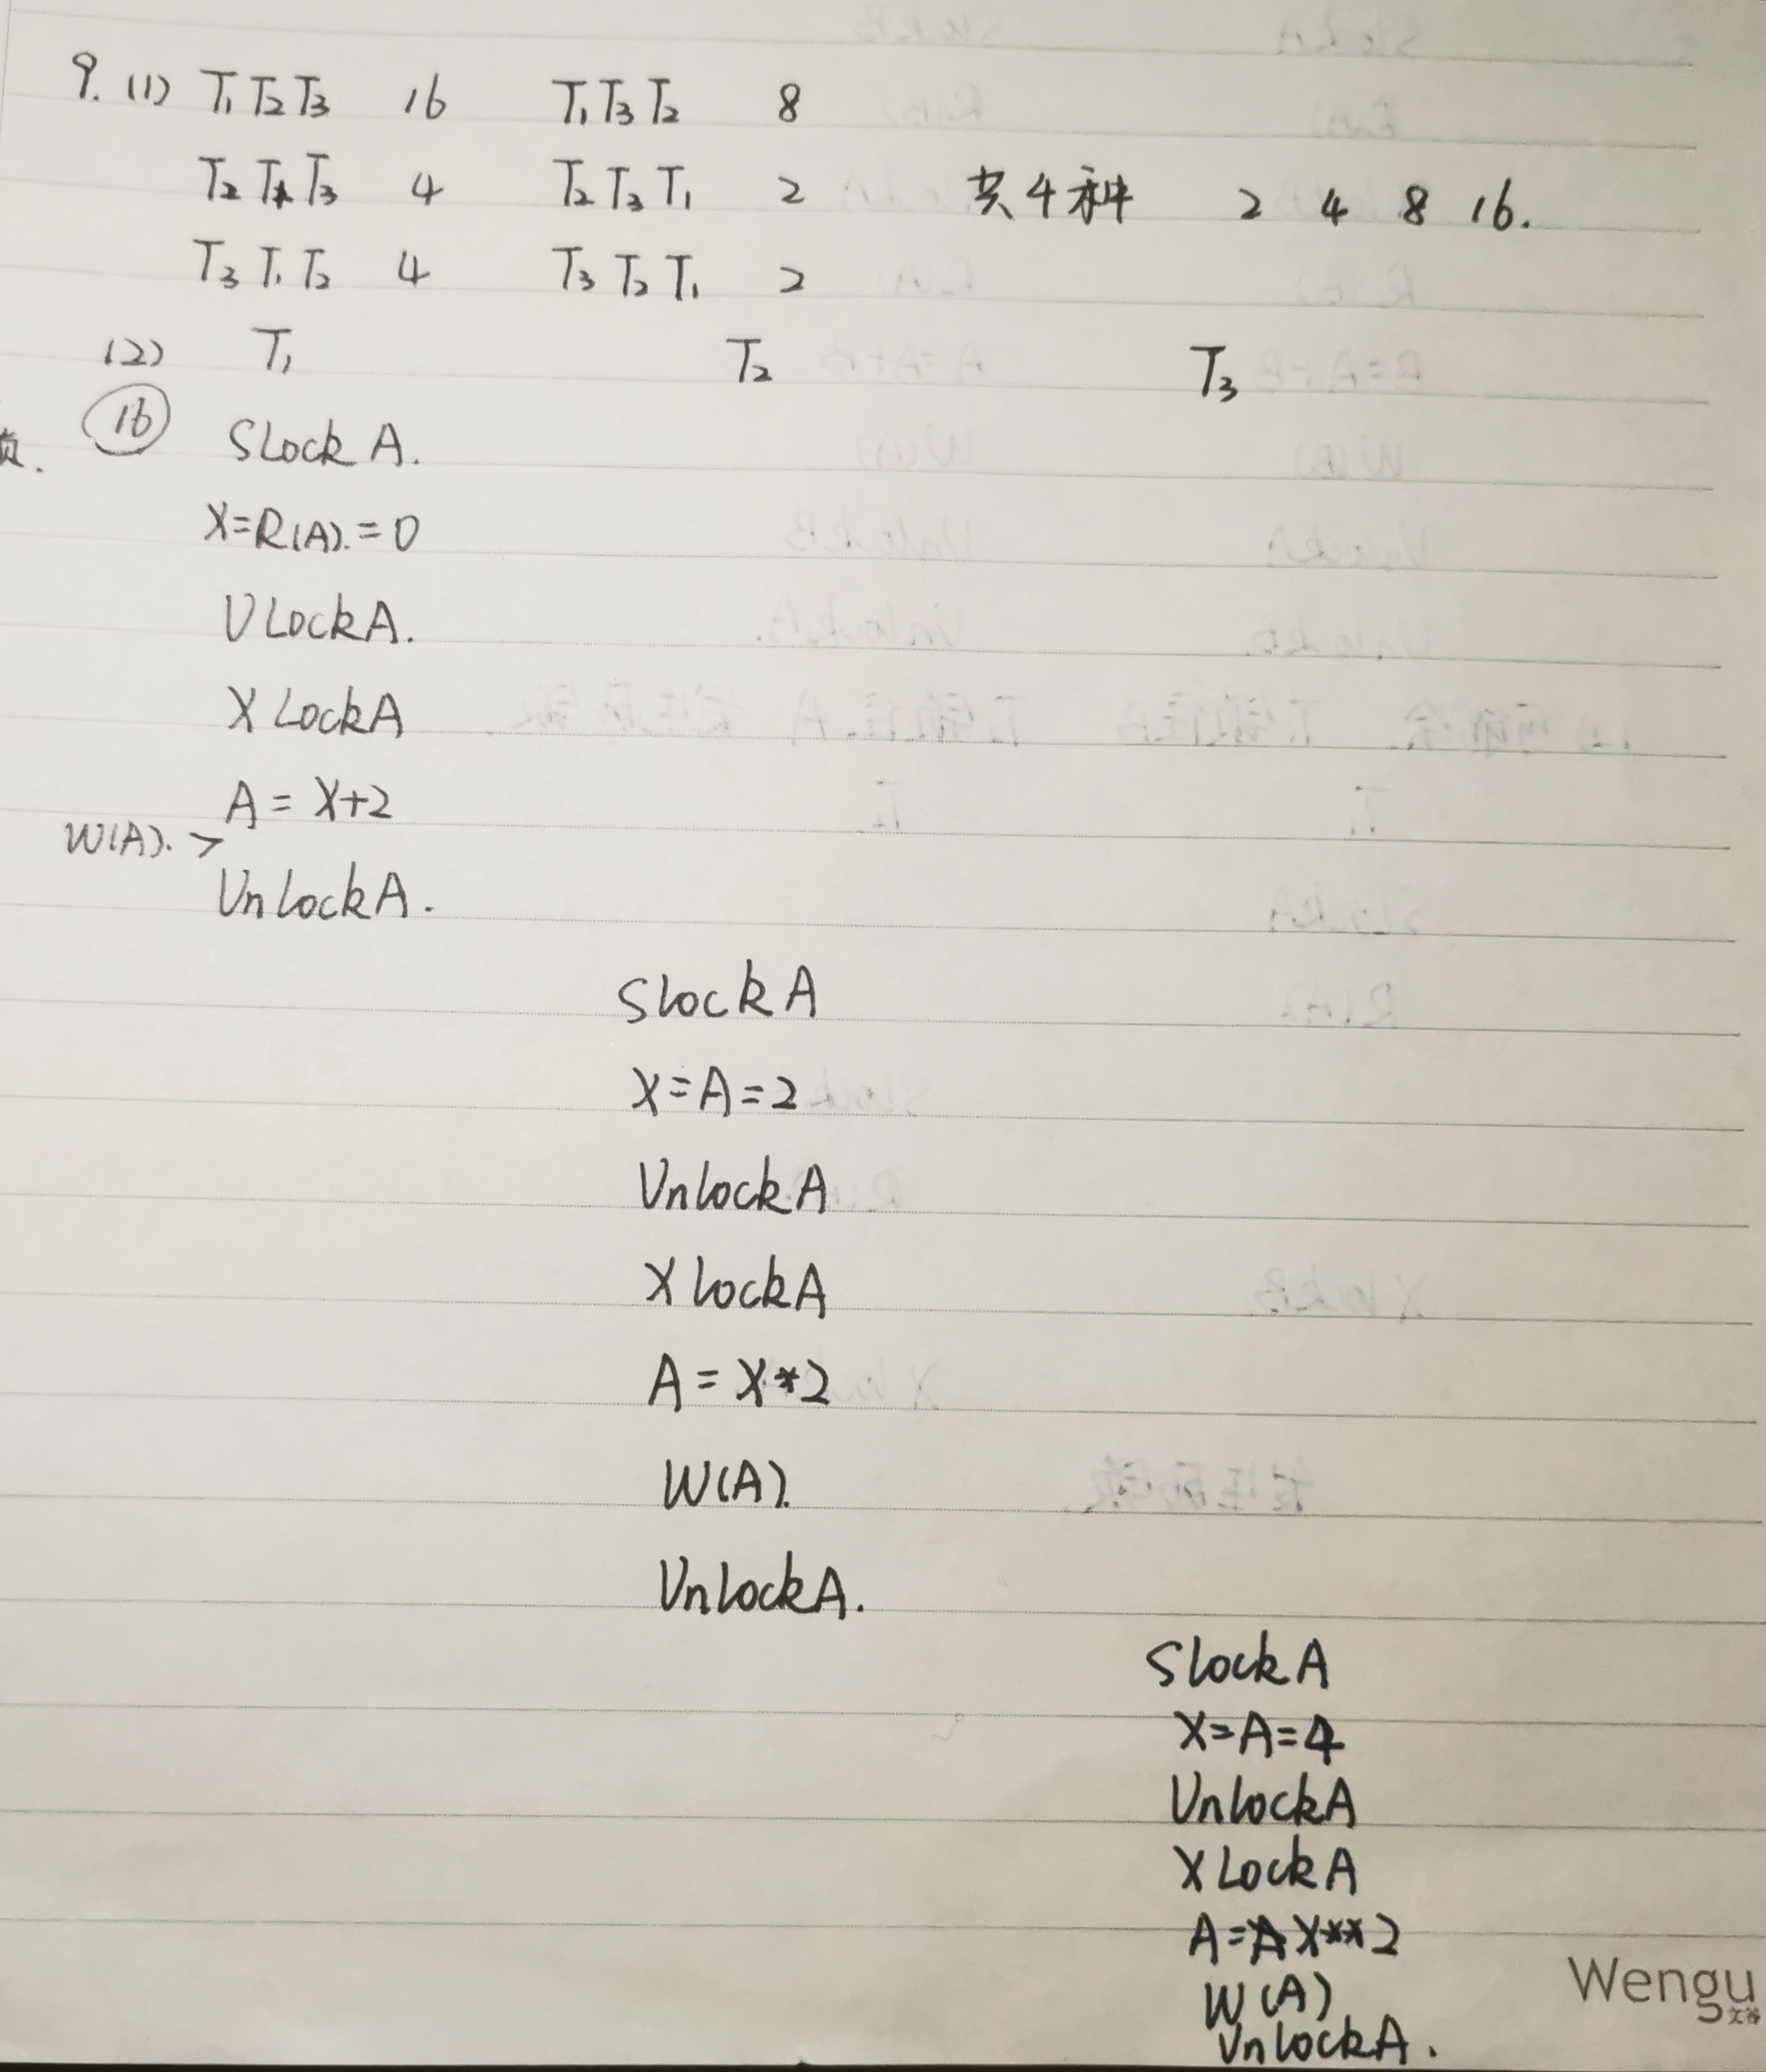 9. (1) T₁ T₂ T₃ 16 T₁ T₃ T₂ 8
T₂ T₁ T₃ 4 T₂ T₃ T₁ 2 共4种 2 4 8 16.
T₃ T₁ T₂ 4 T₃ T₂ T₁ 2
(2) T₁ T₂ T₃
16 SLock A.
X=R(A).=0
ULockA.
X LockA
A = X+2
W(A). >
UnLockA.
SLockA
X=A=2
UnlockA
X LockA
A = X*2
W(A).
UnLockA.
SlockA
X=A=4
UnlockA
X LockA
A= X**2
W(A)
UnlockA.
Wengu
文谷